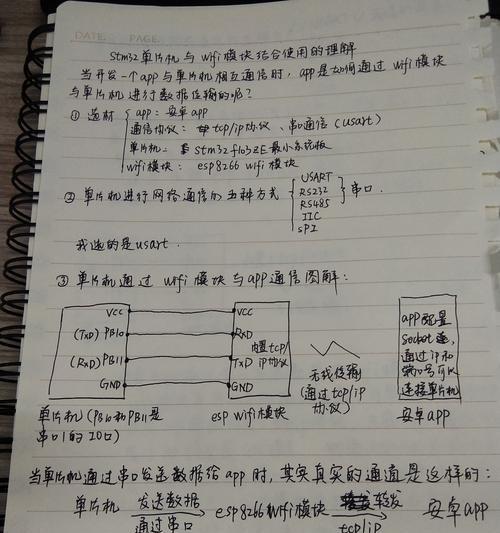 DATE: PAGE:
Stm32单片机与wifi模块结合使用的理解
当开发一个app与单片机相互通信时,app是如何通过wifi模块
与单片机进行数据传输的呢?
① 选材
app:安卓app
通信协议: tcp/ip协议、串口通信(usart)
单片机: stm32f103ZE最小系统板
wifi模块: esp8266 wifi模块
② 单片机进行网络通信的五种方式
USART
RS232
RS485
IIC
SPI
串口.
我选的是usart.
③ 单片机通过wifi模块与app通信图解:
VCC
(TxD) PB10
(RxD) PB11
GND
VCC
RXD
TXD
GND
内置tcp/
ip协议
无线传输
(通过tcp/ip
协议)
app配置
Socket连,
通过ip和
端口号可以
连接单片机
单片机(PB10和PB11是
串口1的IO口)
esp wifi模块
安卓app
当单片机通过串口发送数据给app时,其实真实的通道是这样的:
单片机 发送数据 通过串口 esp8266 wifi模块 转发 tcp/ip 安卓app